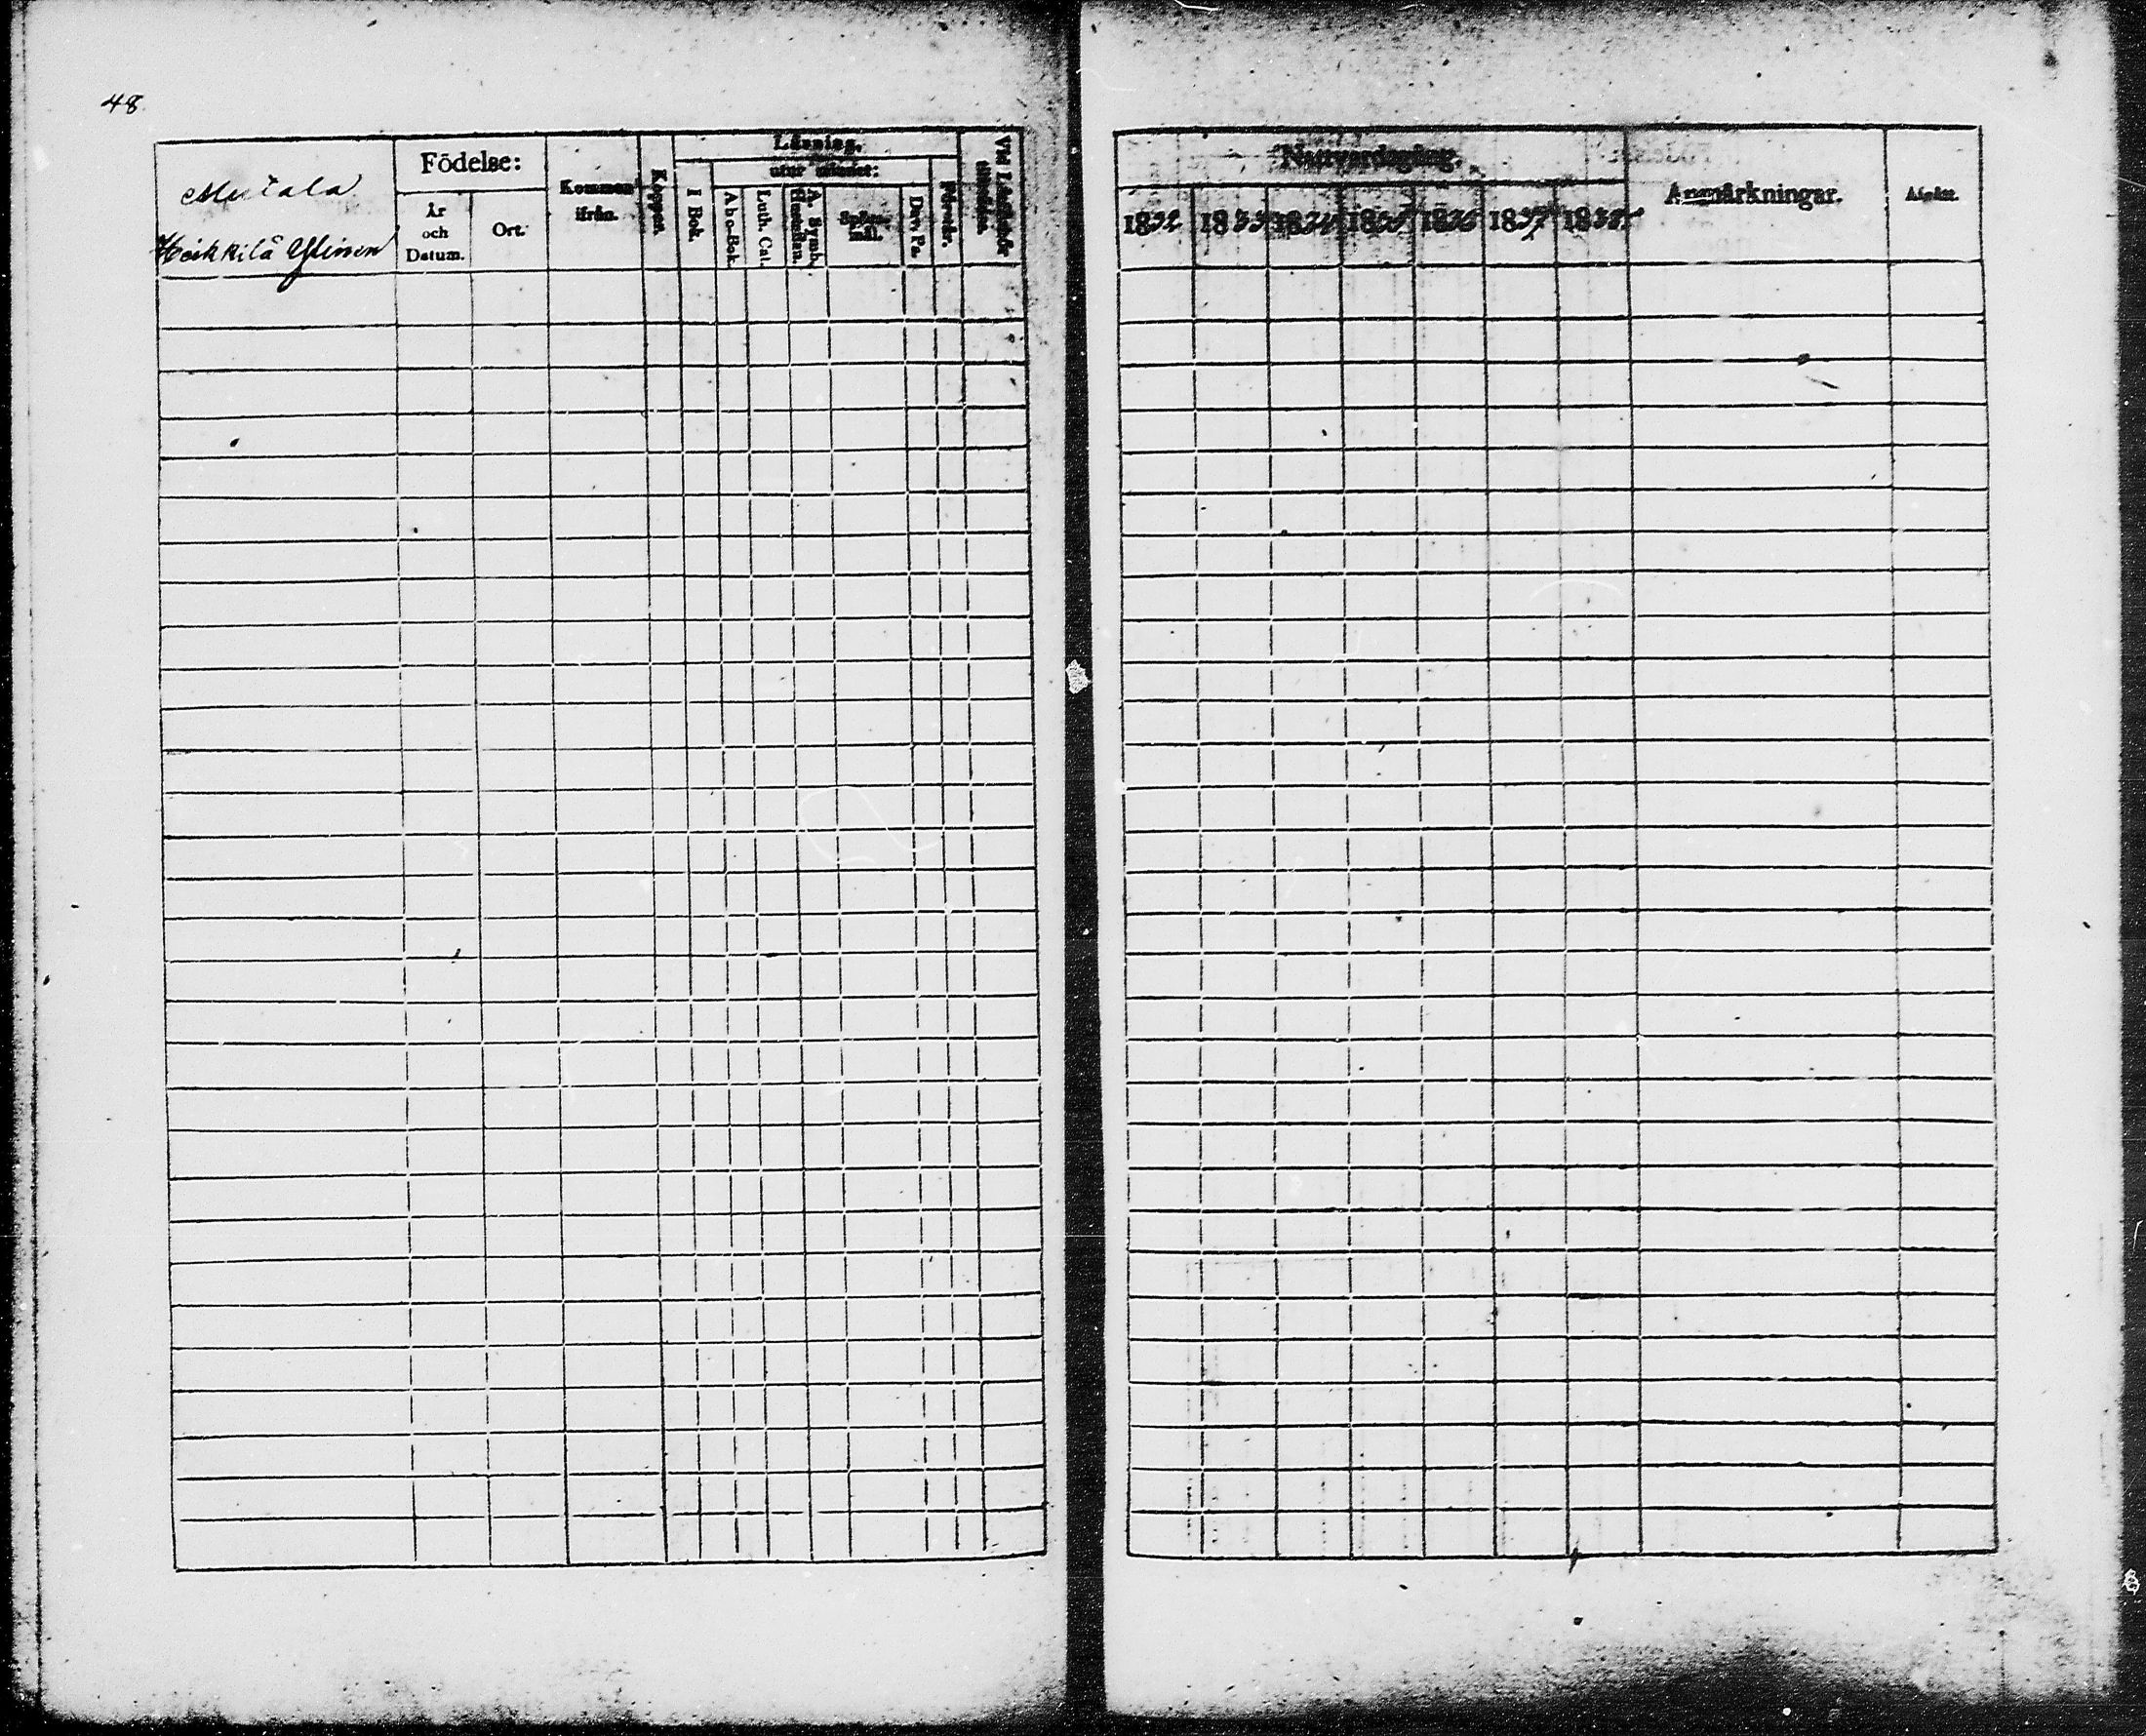 48
Mutala
Heikkilä Yllinen
Födelse:
År
och
Datum.
Ort.
Kommen
ifrån.
Koppor.
Läsning.
utur minnet:
I Bok.
Abc-Bok.
Luth. Cat.
A. Symb.
Hustaflan.
Spörs-
mål.
Dav. Ps.
Försvar.
Vid Läseförhör
Nattvardsgång.
1832
1833
1834
1835
1836
1837
1838
Anmärkningar.